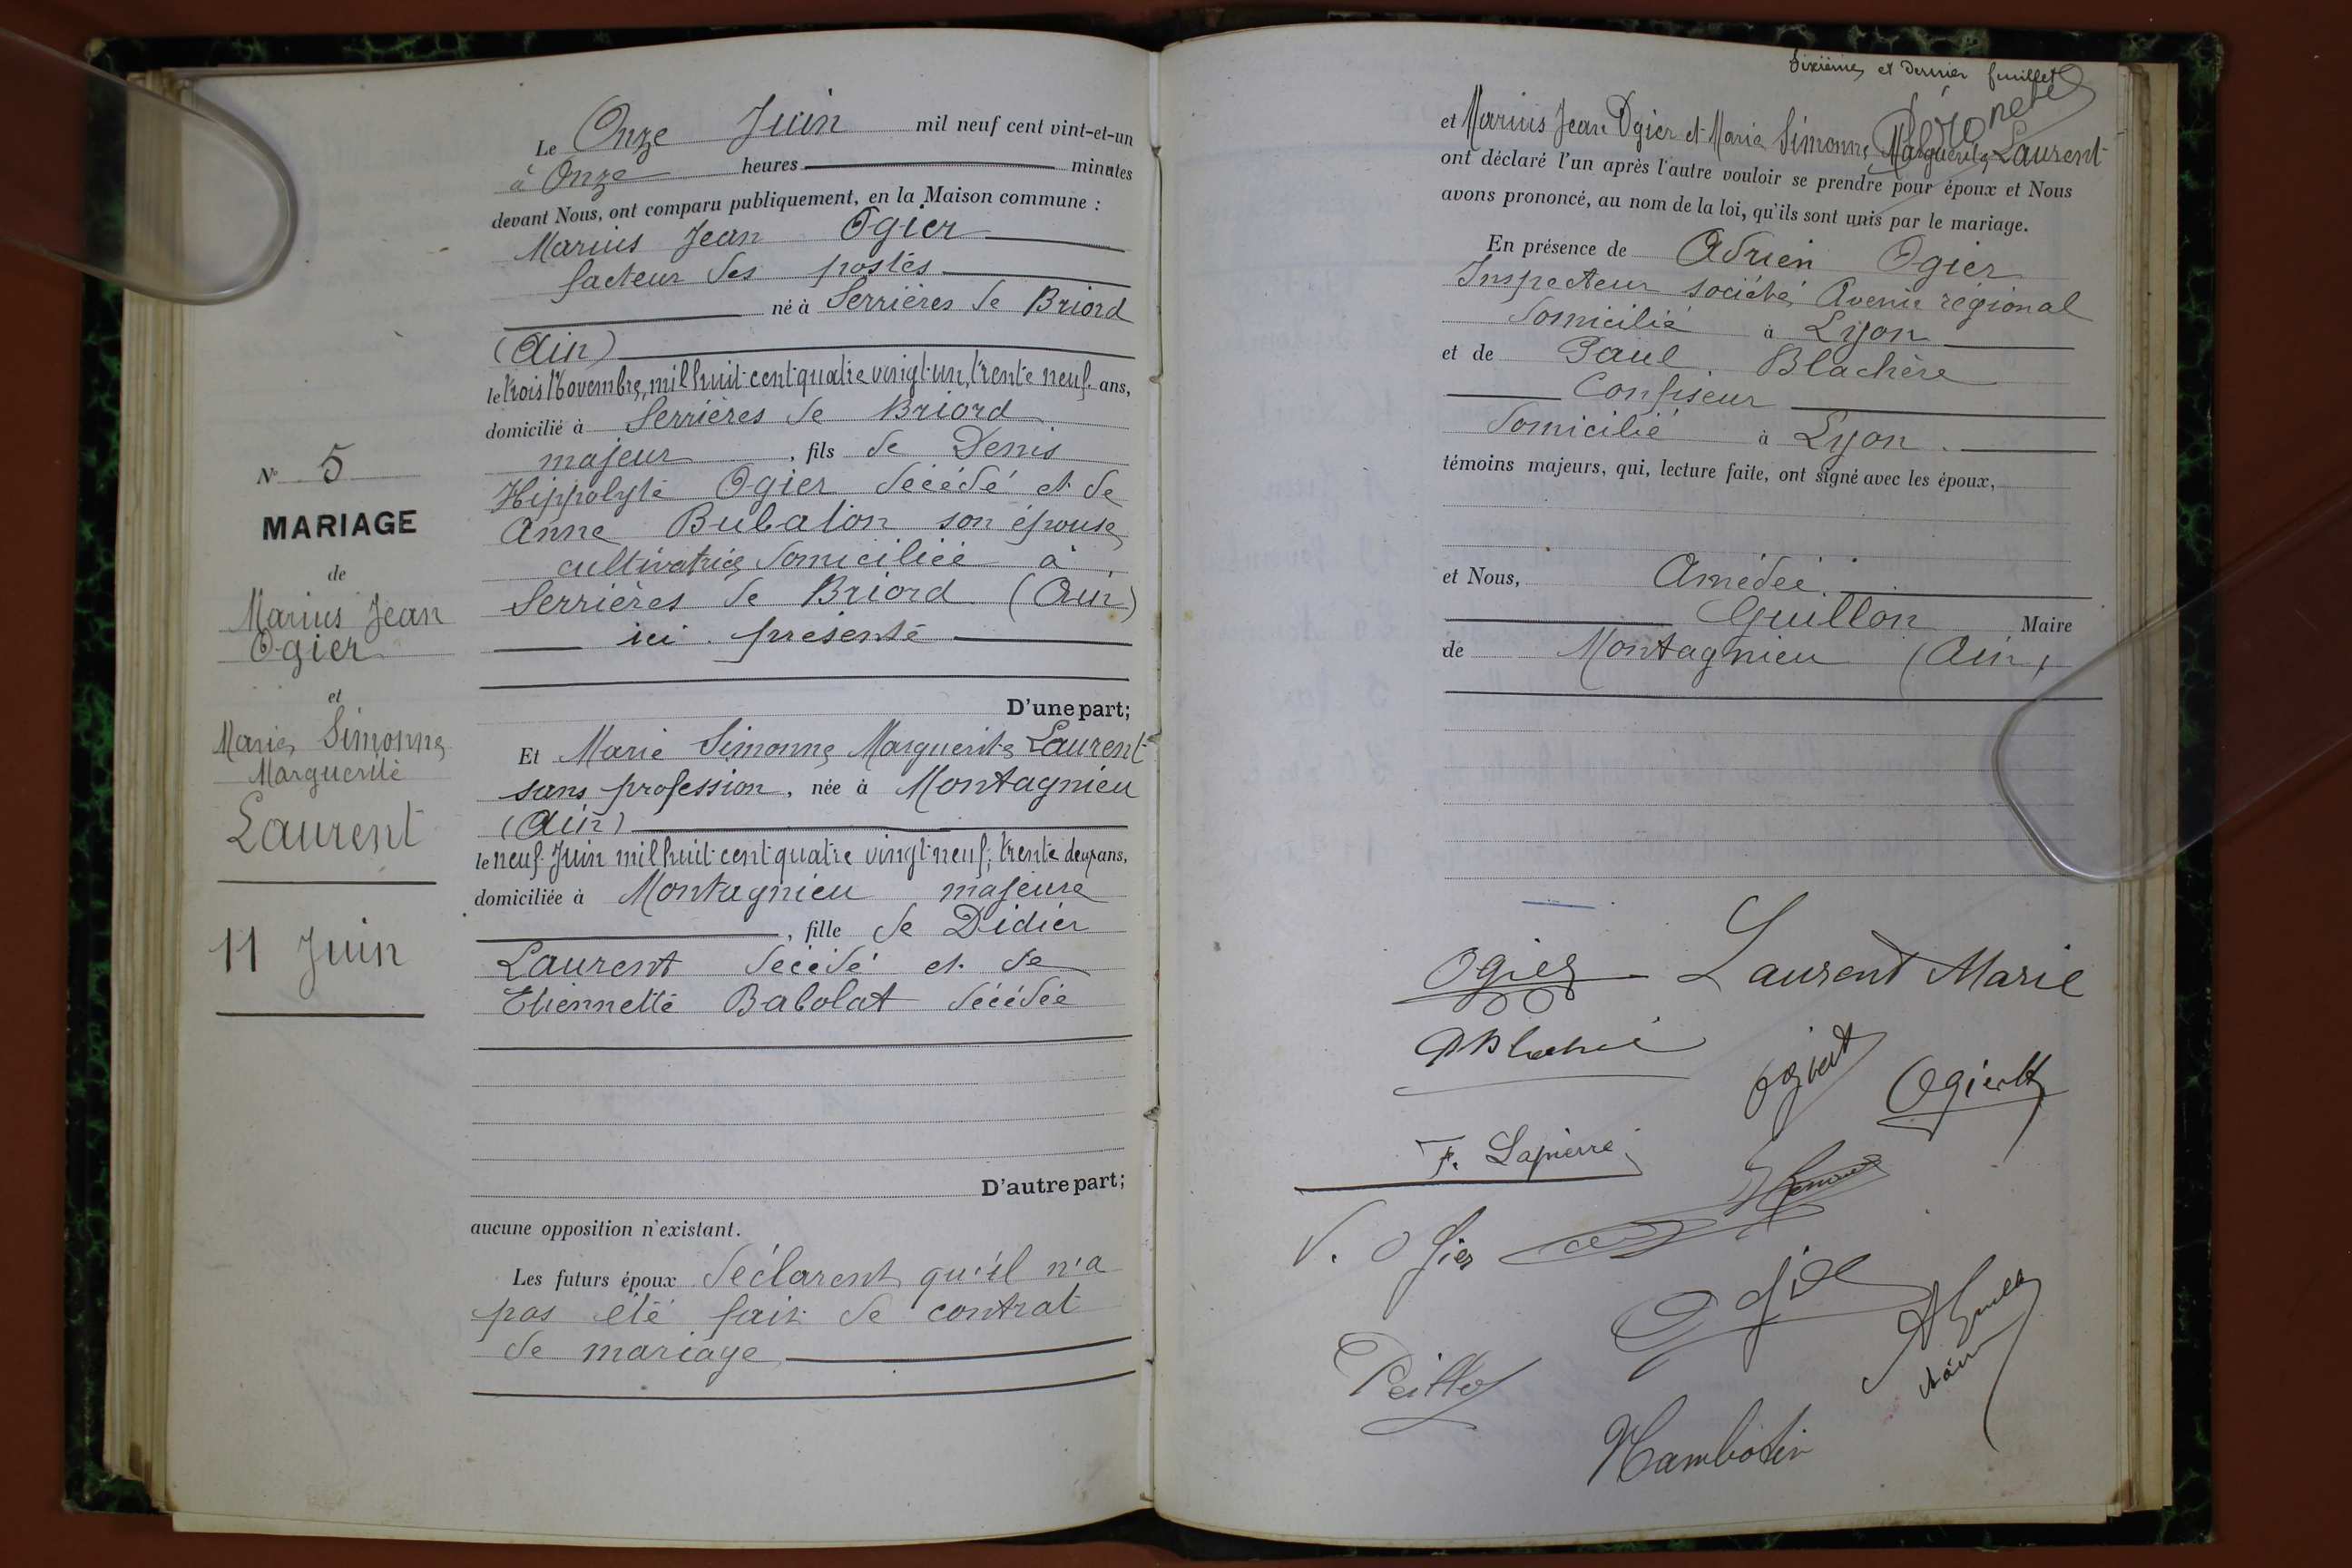 N° 5
MARIAGE
de
Marius Jean
Ogier
et
Marie Simonne
Marguerite
Laurent
11 Juin
Le Onze Juin mil neuf cent vint-et-un
à Onze heures minutes
devant Nous, ont comparu publiquement, en la Maison commune :
Marius Jean Ogier
facteur des postes
né à Serrières de Briord
(Ain)
le trois Novembre, mil huit cent quatre vingt un, trente neuf ans,
domicilié à Serrières de Briord
majeur, fils de Denis
Hippolyte Ogier décédé et de
Anne Bubaton son épouse
cultivatrice domiciliée à
Serrières de Briord (Ain)
ici présente
D'une part;
Et Marie Simonne Marguerite Laurent
sans profession, née à Montagnieu
(Ain)
le neuf Juin mil huit cent quatre vingt neuf, trente deux ans,
domiciliée à Montagnieu majeure
, fille de Didier
Laurent décédé et de
Etiennette Babolat décédée
D'autre part;
aucune opposition n'existant.
Les futurs époux déclarent qu'il n'a
pas été fait de contrat
de mariage
Dixième et dernier feuillet
et Marius Jean Ogier et Marie Simonne Marguerite Laurent
ont déclaré l'un après l'autre vouloir se prendre pour époux et Nous
avons prononcé, au nom de la loi, qu'ils sont unis par le mariage.
En présence de Adrien Ogier
Inspecteur société Avenir régional
domicilié à Lyon
et de Paul Blachère
Confiseur
domicilié à Lyon.
témoins majeurs, qui, lecture faite, ont signé avec les époux,
et Nous, Amédée
Guillon Maire
de Montagnieu (Ain)
Ogier Laurent Marie
Ogier
F. Lapierre
V. Ogier
Ogier